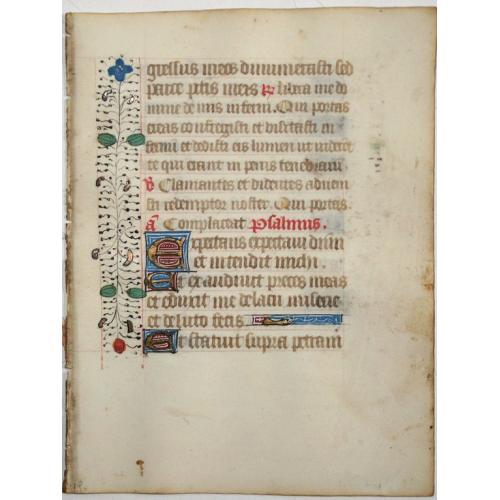 gressus meos dinumerasti sed
parce pctis meis R libera me do
mine de uijs inferni. Qui portas
ereas confregisti et visitasti in
fernu et dedisti eis lumen ut videret
te qui erant in penis tenebraru
V Clamantes et dicentes adueni
sti redemptor noster. Qui portas.
a Complaceat Psalmus.
Expectans expectaui dnm
et intendit michi.
Et exaudiuit preces meas
et eduxit me de lacu miserie
et de luto fecis
Et statuit supra petram